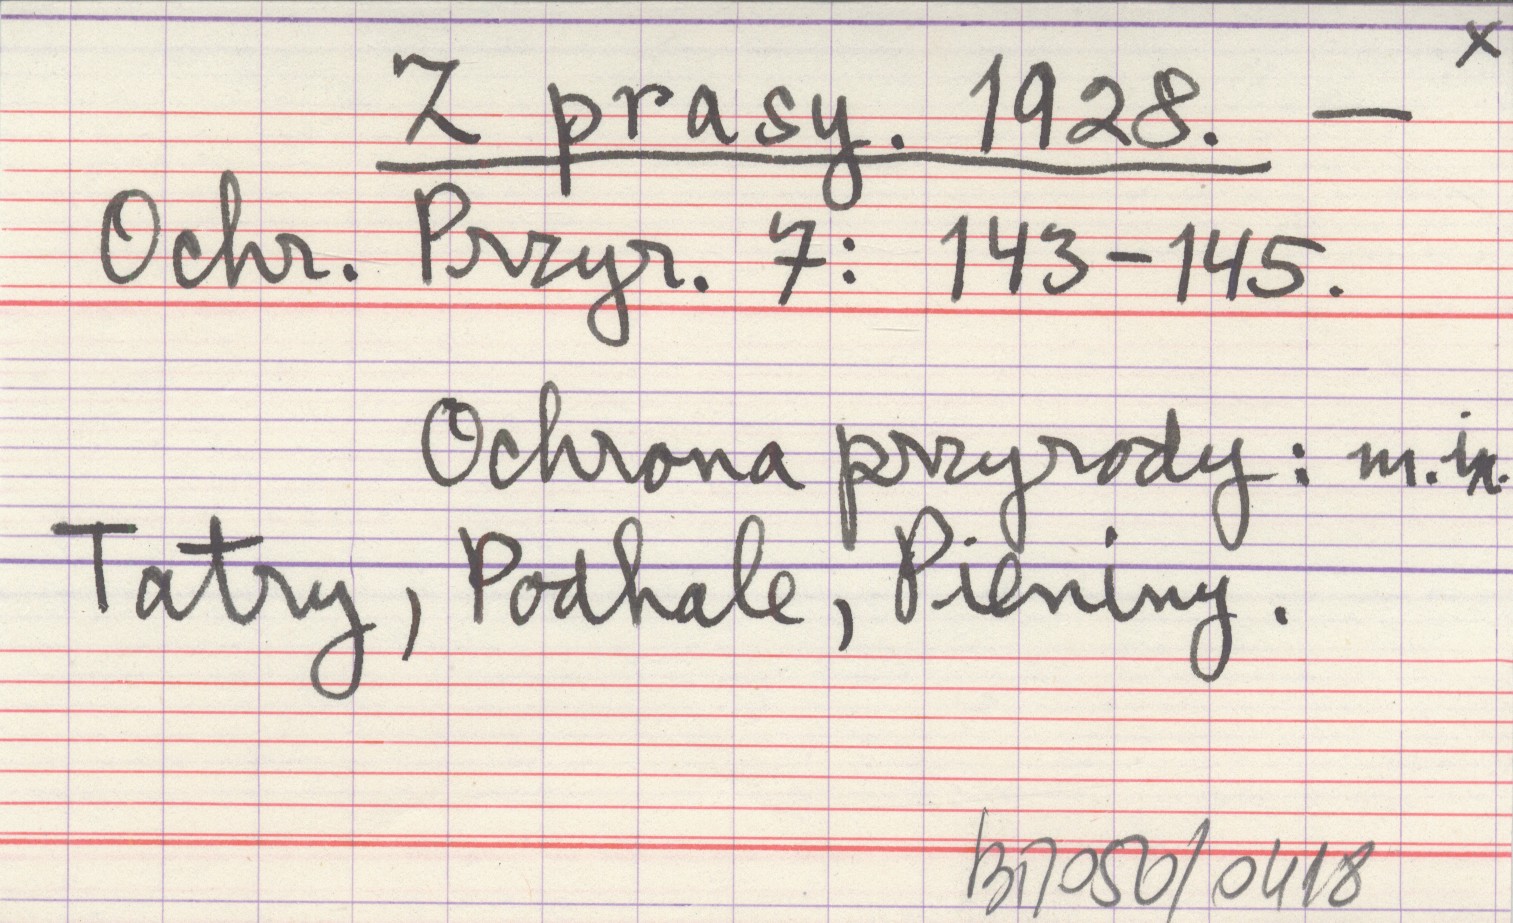 x
Z prasy. 1928. —
Ochr. Przyr. 7: 143-145.
Ochrona przyrody: m.in.
Tatry, Podhale, Pieniny.